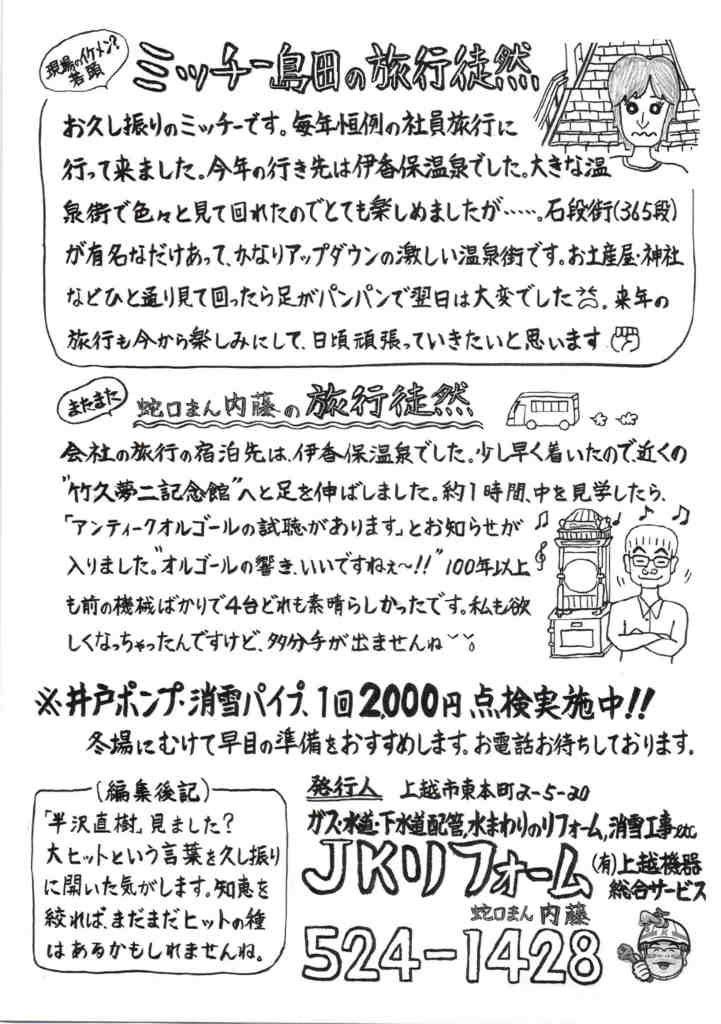 現場のイケメン?
若頭
ミッチー島田の旅行徒然
お久し振りのミッチーです。毎年恒例の社員旅行に
行って来ました。今年の行き先は伊香保温泉でした。大きな温
泉街で色々と見て回れたのでとても楽しめましたが……。石段街(365段)
が有名なだけあって、かなりアップダウンの激しい温泉街です。お土産屋・神社
などひと通り見て回ったら足がパンパンで翌日は大変でした。来年の
旅行も今から楽しみにして、日頃頑張っていきたいと思います
またまた
蛇口まん内藤の旅行徒然
会社の旅行の宿泊先は、伊香保温泉でした。少し早く着いたので、近くの
"竹久夢二記念館"へと足を伸ばしました。約1時間、中を見学したら、
「アンティークオルゴールの試聴があります」とお知らせが
入りました。"オルゴールの響き、いいですねぇ〜!!"100年以上
も前の機械ばかりで4台どれも素晴らしかったです。私も欲
しくなっちゃったんですけど、多分手が出ませんね
※井戸ポンプ・消雪パイプ、1回2,000円点検実施中!!
冬場にむけて早目の準備をおすすめします。お電話お待ちしております。
(編集後記)
「半沢直樹」見ました?
大ヒットという言葉を久し振り
に聞いた気がします。知恵を
絞れば、まだまだヒットの種
はあるかもしれませんね。
発行人 上越市東本町2-5-20
ガス・水道・下水道配管,水まわりのリフォーム,消雪工事etc
JKリフォーム
(有)上越機器
総合サービス
蛇口まん 内藤
524-1428